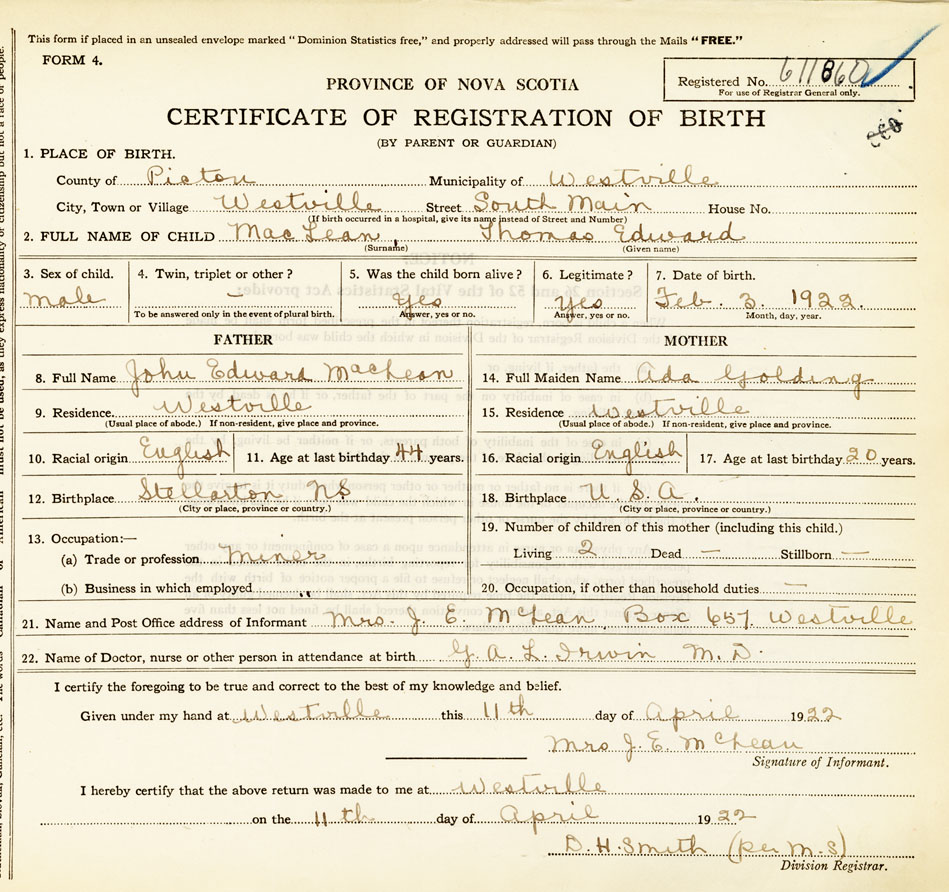 This form if placed in an unsealed envelope marked "Dominion Statistics free," and properly addressed will pass through the Mails "FREE."
FORM 4.
Registered No. 611860
For use of Registrar General only.
PROVINCE OF NOVA SCOTIA
CERTIFICATE OF REGISTRATION OF BIRTH
(BY PARENT OR GUARDIAN)
1. PLACE OF BIRTH.
County of Pictou Municipality of Westville
City, Town or Village Westville Street South Main House No.
(If birth occurred in a hospital, give its name instead of Street and Number)
2. FULL NAME OF CHILD MacLean, Thomas Edward
(Surname) (Given name)
3. Sex of child. 4. Twin, triplet or other? 5. Was the child born alive? 6. Legitimate? 7. Date of birth.
male — Yes Yes Feb. 3. 1922.
To be answered only in the event of plural birth. Answer, yes or no. Answer, yes or no. Month, day, year.
FATHER MOTHER
8. Full Name John Edward MacLean 14. Full Maiden Name Ada Golding
9. Residence. Westville 15. Residence Westville
(Usual place of abode.) If non-resident, give place and province. (Usual place of abode.) If non-resident, give place and province.
10. Racial origin English 11. Age at last birthday 44 years. 16. Racial origin English 17. Age at last birthday 20 years.
12. Birthplace Stellarton NS 18. Birthplace U.S.A.
(City or place, province or country.) (City or place, province or country.)
19. Number of children of this mother (including this child.)
13. Occupation:—
(a) Trade or profession Miner Living 2 Dead — Stillborn —
(b) Business in which employed " 20. Occupation, if other than household duties —
21. Name and Post Office address of Informant Mrs. J. E. McLean, Box 657, Westville
22. Name of Doctor, nurse or other person in attendance at birth G. A. L. Irwin M.D.
I certify the foregoing to be true and correct to the best of my knowledge and belief.
Given under my hand at Westville this 11th day of April 1922
Mrs J. E. McLean
Signature of Informant.
I hereby certify that the above return was made to me at Westville
on the 11th day of April 1922
D. H. Smith (per M.S)
Division Registrar.